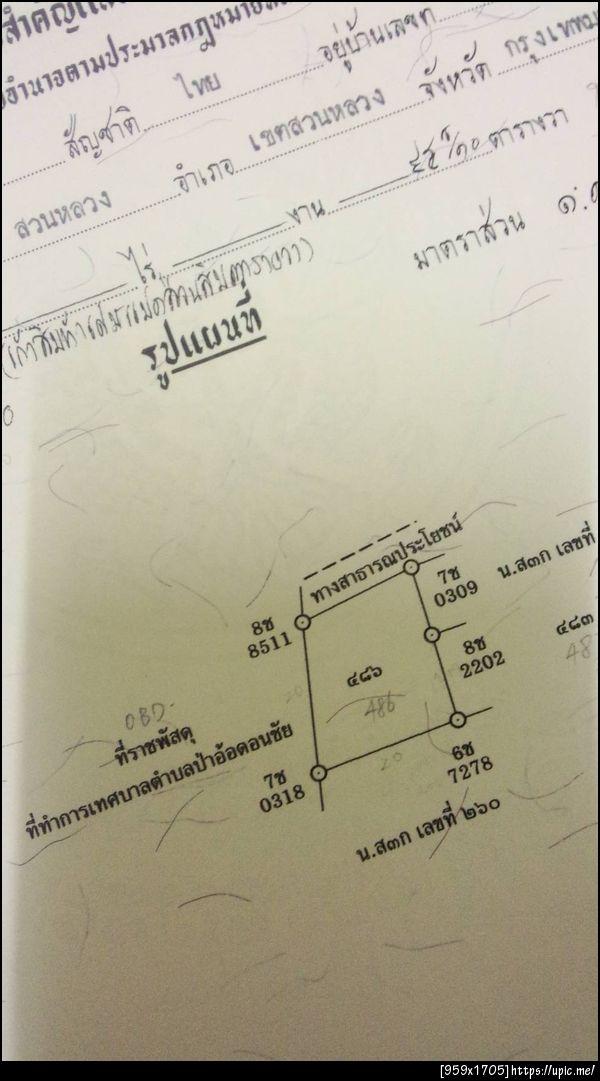 สำคัญแสดง
อำนาจตามประมวลกฎหมาย
สัญชาติ ไทย อยู่บ้านเลขที่
สวนหลวง อำเภอ เขตสวนหลวง จังหวัด กรุงเทพ
ไร่ งาน ตารางวา
รูปแผนที่ มาตราส่วน
ทางสาธารณประโยชน์
8ช
8511
7ช
0309
น.ส๓ก เลขที่
๔๘๓
48
8ช
2202
๔๘๖
486
20
OBD.
ที่ราชพัสดุ
ที่ทำการเทศบาลตำบลป่าอ้อดอนชัย
7ช
0318
20
6ช
7278
น.ส๓ก เลขที่ ๒๖๐
[959x1705]https://upic.me/